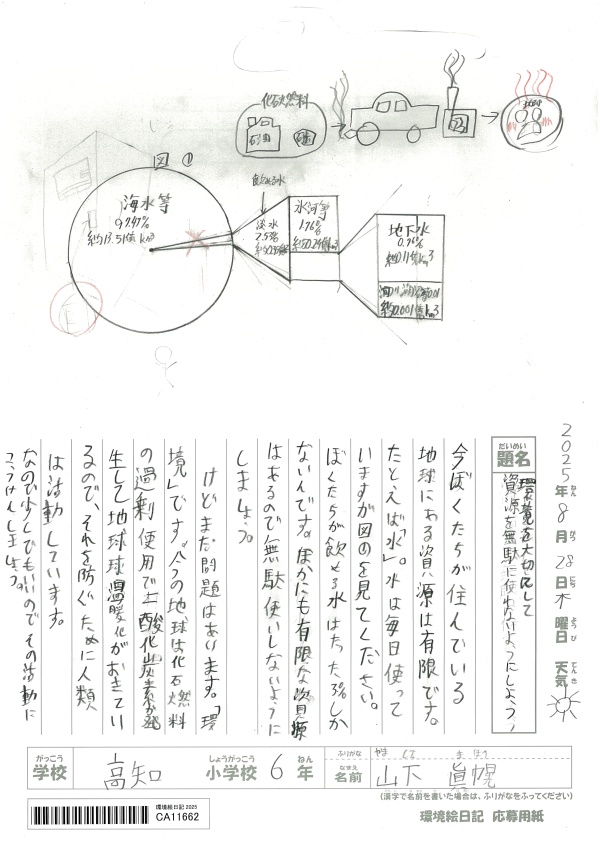 化石燃料
石油
図①
飲める水
海水等
97.47%
約13.51億km³
淡水
2.53%
氷河等
1.76%
約0.24億km³
地下水
0.76%
約0.11億km³
約0.001億km³
2025年8月28日木曜日 天気
だいめい
題名
環境を大切にして
資源を無駄に使わないようにしよう!
今ぼくたちが住んでいる
地球にある資源は有限です。
たとえば「水」。水は毎日使って
いますが図の①を見てください。
ぼくたちが飲める水はたった3%しか
ないんです。ほかにも有限な資源
はあるので無駄使いしないように
しましょう。
けどまだ問題はあります。「環
境」です。今の地球は化石燃料
の過剰使用で二酸化炭素が発
生して地球温暖化がおきてい
るので、それを防ぐために人類
は活動しています。
なので少しでもいいのでその活動に
こうけんしましょう。
がっこう
学校
高知
しょうがっこう
小学校
6
ねん
年
ふりがな
なまえ
名前
やました まほろ
山下 眞幌
(漢字で名前を書いた場合は、ふりがなをふってください)
環境絵日記2025
CA11662
環境絵日記 応募用紙